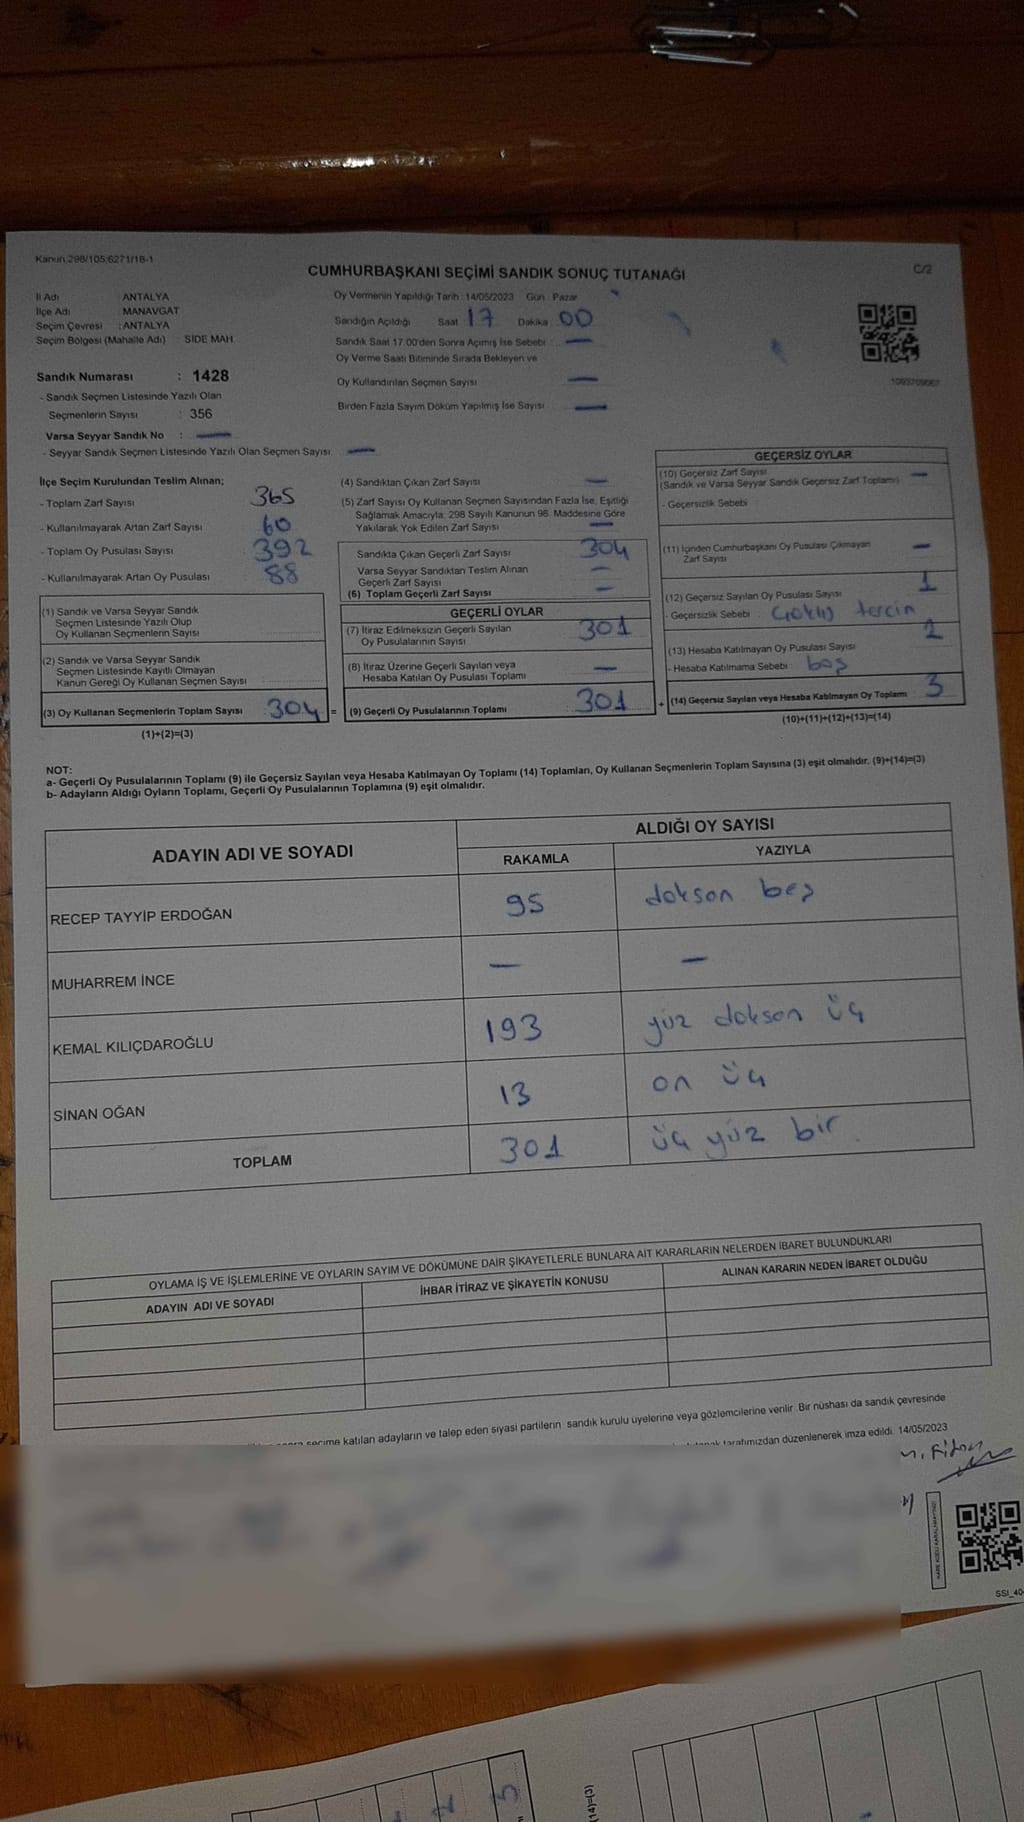 Kanun 298/105;6271/18-1
CUMHURBAŞKANI SEÇİMİ SANDIK SONUÇ TUTANAĞI
C/2
İl Adı : ANTALYA
İlçe Adı : MANAVGAT
Seçim Çevresi : ANTALYA
Seçim Bölgesi (Mahalle Adı) SİDE MAH.
Sandık Numarası : 1428
- Sandık Seçmen Listesinde Yazılı Olan
Seçmenlerin Sayısı : 356
Varsa Seyyar Sandık No : —
- Seyyar Sandık Seçmen Listesinde Yazılı Olan Seçmen Sayısı: —
Oy Vermenin Yapıldığı Tarih : 14/05/2023 Gün : Pazar
Sandığın Açıldığı Saat 17 Dakika 00
Sandık Saat 17.00'den Sonra Açımış İse Sebebi : —
Oy Verme Saati Bitiminde Sırada Bekleyen ve
Oy Kullandırılan Seçmen Sayısı —
Birden Fazla Sayım Döküm Yapılmış İse Sayısı —
İlçe Seçim Kurulundan Teslim Alınan;
- Toplam Zarf Sayısı 365
- Kullanılmayarak Artan Zarf Sayısı 60
- Toplam Oy Pusulası Sayısı 392
- Kullanılmayarak Artan Oy Pusulası 88
(1) Sandık ve Varsa Seyyar Sandık
Seçmen Listesinde Yazılı Olup
Oy Kullanan Seçmenlerin Sayısı
(2) Sandık ve Varsa Seyyar Sandık
Seçmen Listesinde Kayıtlı Olmayan
Kanun Gereği Oy Kullanan Seçmen Sayısı
(3) Oy Kullanan Seçmenlerin Toplam Sayısı 304 =
(1)+(2)=(3)
(4) Sandıktan Çıkan Zarf Sayısı —
(5) Zarf Sayısı Oy Kullanan Seçmen Sayısından Fazla İse, Eşitliği
Sağlamak Amacıyla; 298 Sayılı Kanunun 98. Maddesine Göre
Yakılarak Yok Edilen Zarf Sayısı —
Sandıkta Çıkan Geçerli Zarf Sayısı 304
Varsa Seyyar Sandıktan Teslim Alınan
Geçerli Zarf Sayısı —
(6) Toplam Geçerli Zarf Sayısı —
GEÇERLİ OYLAR
(7) İtiraz Edilmeksizin Geçerli Sayılan
Oy Pusulalarının Sayısı 301
(8) İtiraz Üzerine Geçerli Sayılan veya
Hesaba Katılan Oy Pusulası Toplamı —
(9) Geçerli Oy Pusulalarının Toplamı 301 +
GEÇERSİZ OYLAR
(10) Geçersiz Zarf Sayısı
(Sandık ve Varsa Seyyar Sandık Geçersiz Zarf Toplamı) —
- Geçersizlik Sebebi
(11) İçinden Cumhurbaşkanı Oy Pusulası Çıkmayan
Zarf Sayısı —
(12) Geçersiz Sayılan Oy Pusulası Sayısı 1
- Geçersizlik Sebebi : tercih
(13) Hesaba Katılmayan Oy Pusulası Sayısı 2
- Hesaba Katılmama Sebebi : boş
(14) Geçersiz Sayılan veya Hesaba Katılmayan Oy Toplamı 3
(10)+(11)+(12)+(13)=(14)
NOT:
a- Geçerli Oy Pusulalarının Toplamı (9) ile Geçersiz Sayılan veya Hesaba Katılmayan Oy Toplamı (14) Toplamları, Oy Kullanan Seçmenlerin Toplam Sayısına (3) eşit olmalıdır. (9)+(14)=(3)
b- Adayların Aldığı Oyların Toplamı, Geçerli Oy Pusulalarının Toplamına (9) eşit olmalıdır.
ADAYIN ADI VE SOYADI ALDIĞI OY SAYISI
RAKAMLA YAZIYLA
RECEP TAYYİP ERDOĞAN 95 doksan beş
MUHARREM İNCE — —
KEMAL KILIÇDAROĞLU 193 yüz doksan üç
SİNAN OĞAN 13 on üç
TOPLAM 301 üç yüz bir
OYLAMA İŞ VE İŞLEMLERİNE VE OYLARIN SAYIM VE DÖKÜMÜNE DAİR ŞİKAYETLERLE BUNLARA AİT KARARLARIN NELERDEN İBARET BULUNDUKLARI
ADAYIN ADI VE SOYADI İHBAR İTİRAZ VE ŞİKAYETİN KONUSU ALINAN KARARIN NEDEN İBARET OLDUĞU
seçime katılan adayların ve talep eden siyasi partilerin sandık kurulu üyelerine veya gözlemcilerine verilir. Bir nüshası da sandık çevresinde
tarafımızdan düzenlenerek imza edildi. 14/05/2023
SSI_40
(14)=(3)